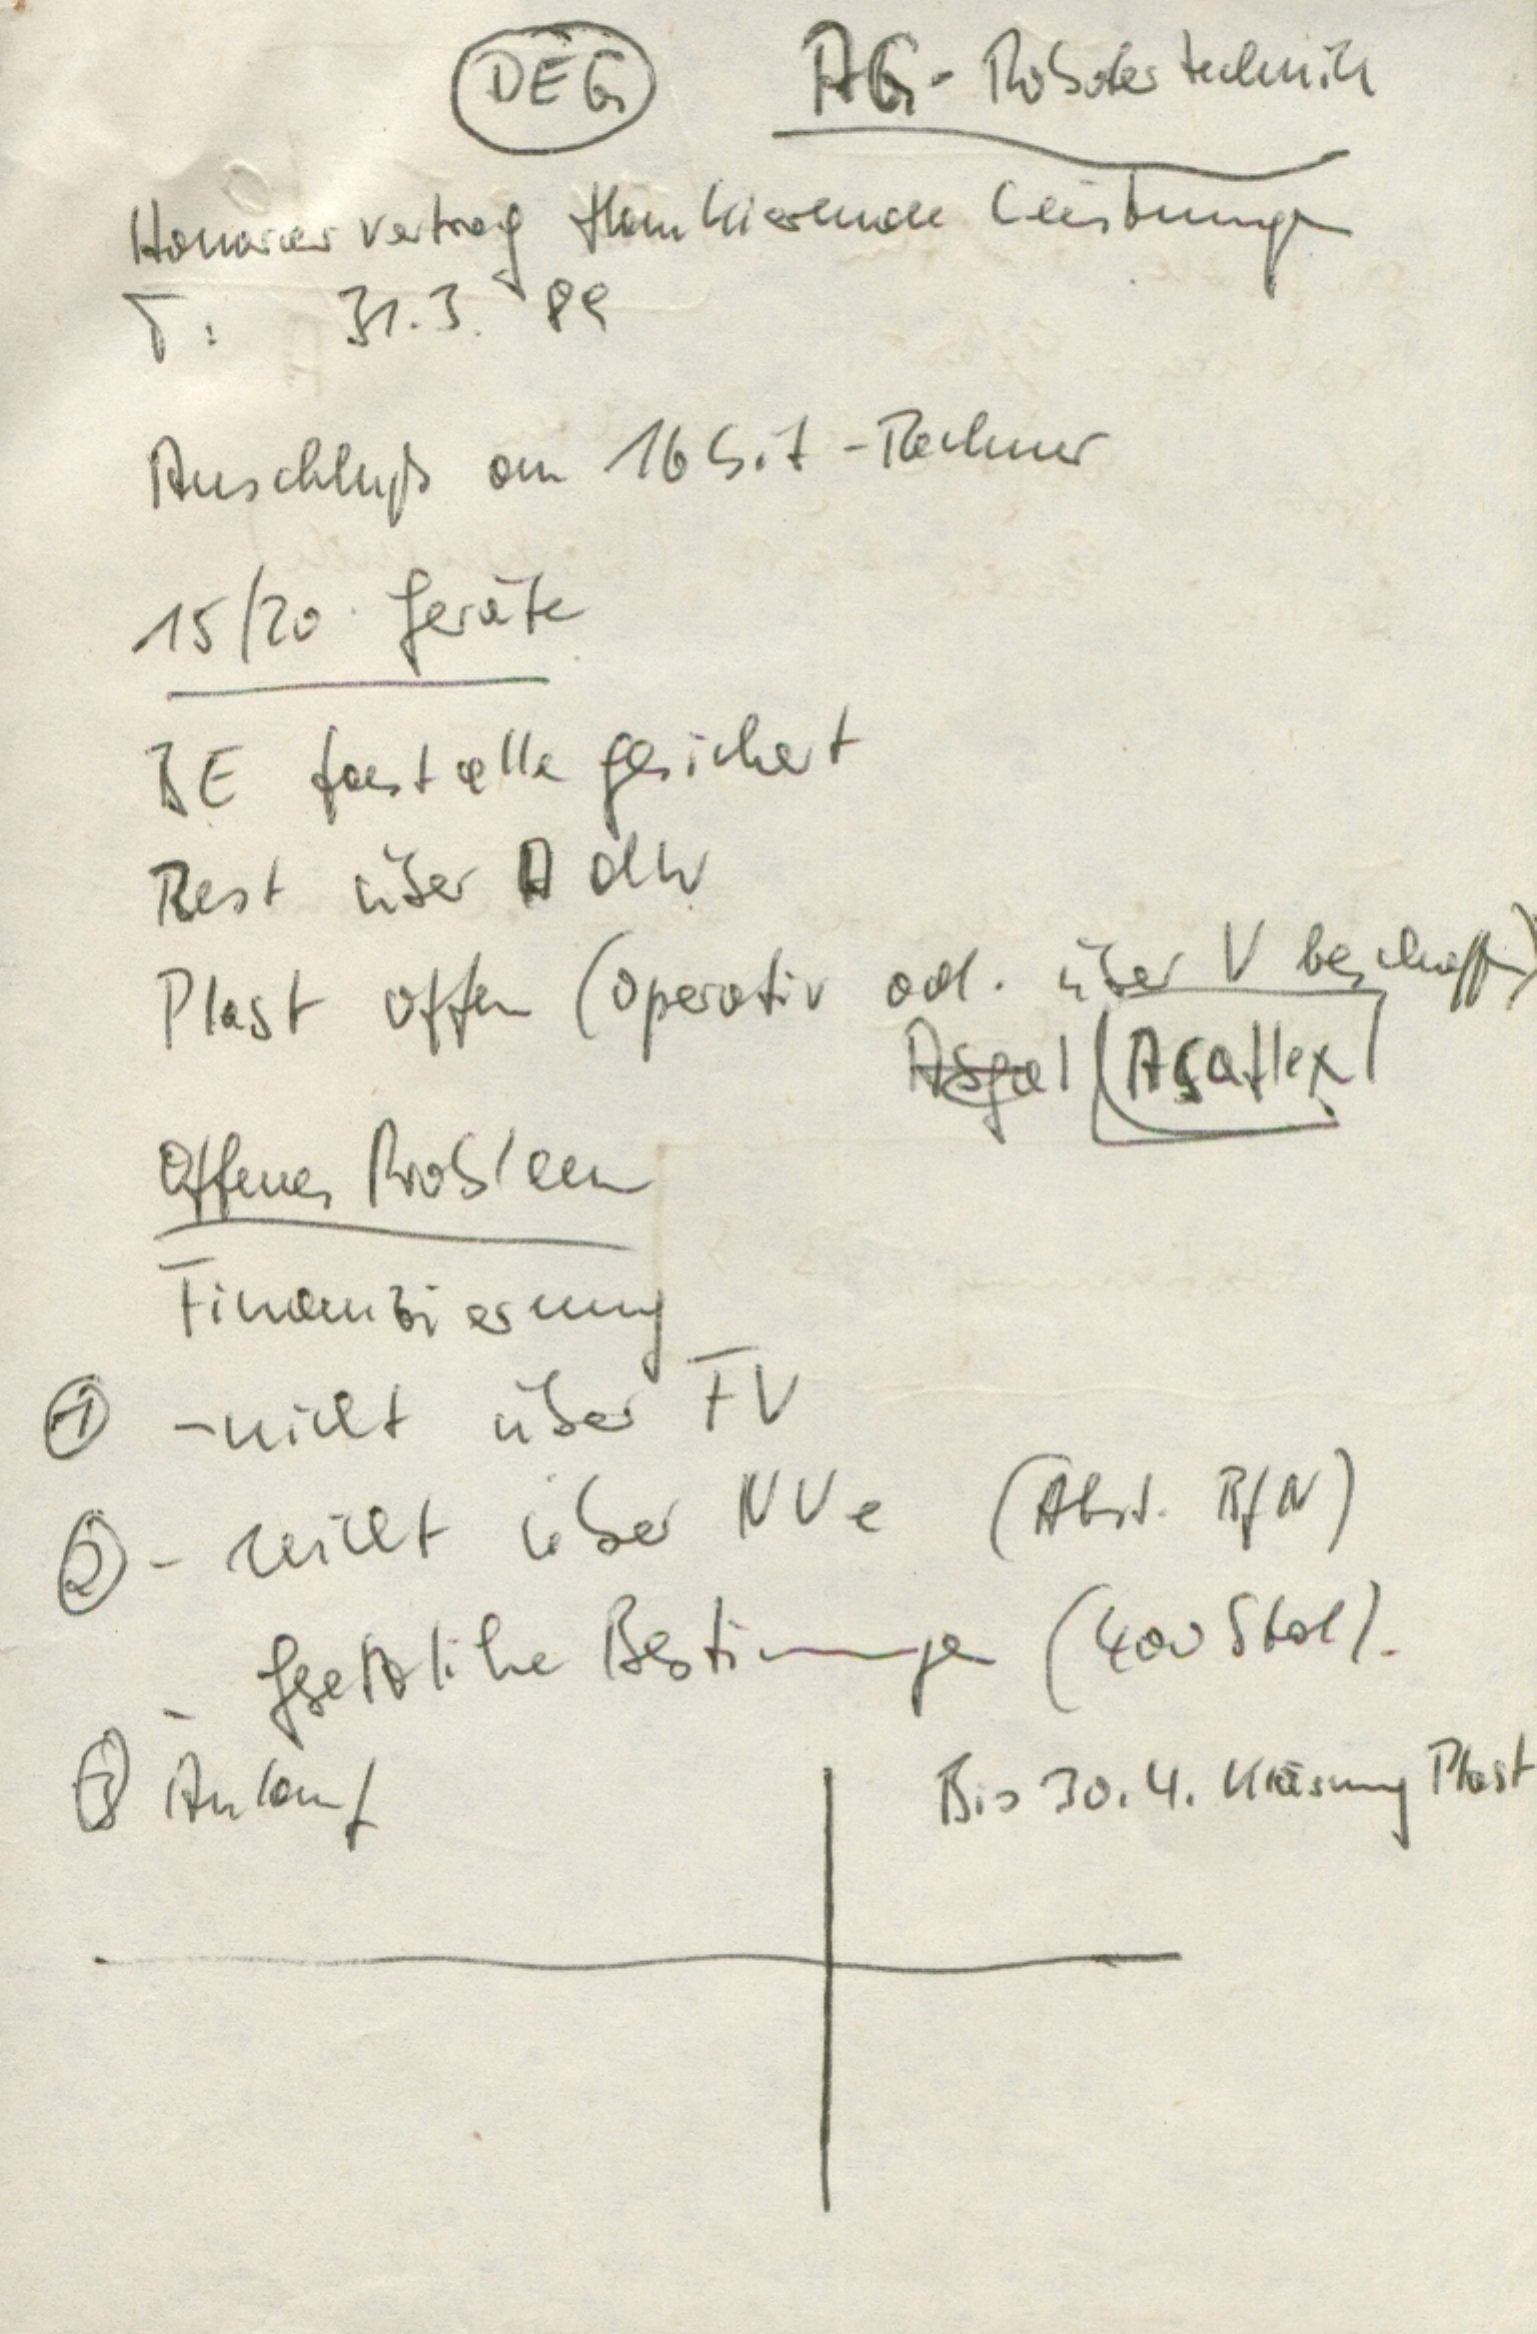 DEG AG-Robotertechnik
Honorarvertrag flankierende Leistungen
T: 31.3. 89
Anschluß an 16bit-Rechner
15/20 Geräte
BE fast alle gesichert
Rest über AdW
Plast offen (operativ od. über V beschaffen)
Asaflex
Offenes Problem
Finanzierung
① - nicht über FV
② - nicht über NVe (Abst. BfN)
- gesetzliche Bestimmungen (400 Stdl).
③ Anlauf
Bis 30.4. Klärung Plast